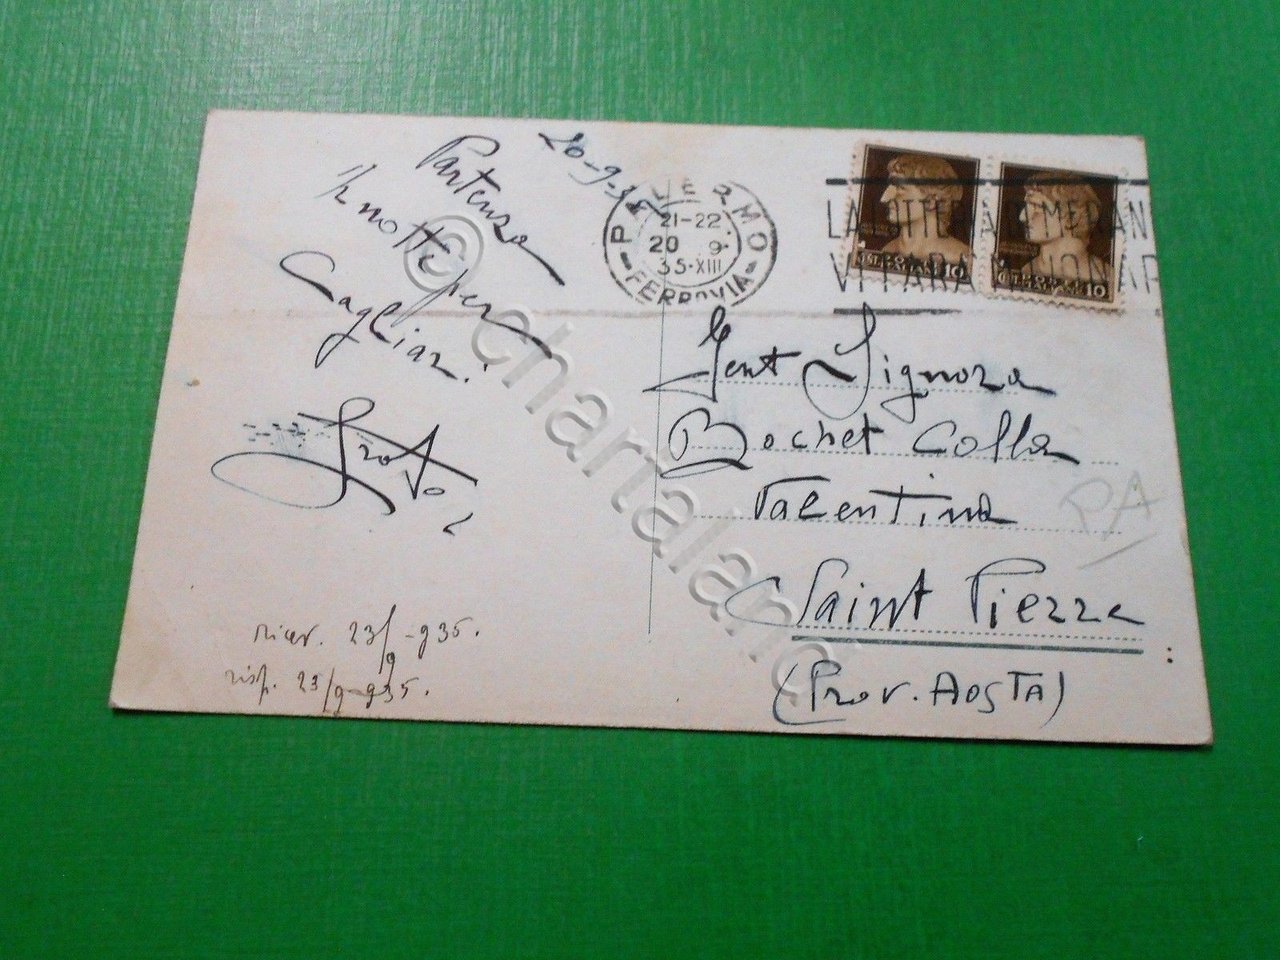 20-9-35
Partenza
1/2 notte per
Cagliari
PALERMO
21-22
20 9
35-XIII
FERROVIA
LA
VI
10
10
Gent Signora
Bochet Colla
Valentina
Saint Pierre
(Prov. AOSTA)
PA
ricev. 23/9-935.
risp. 23/9-935.
© chartaland